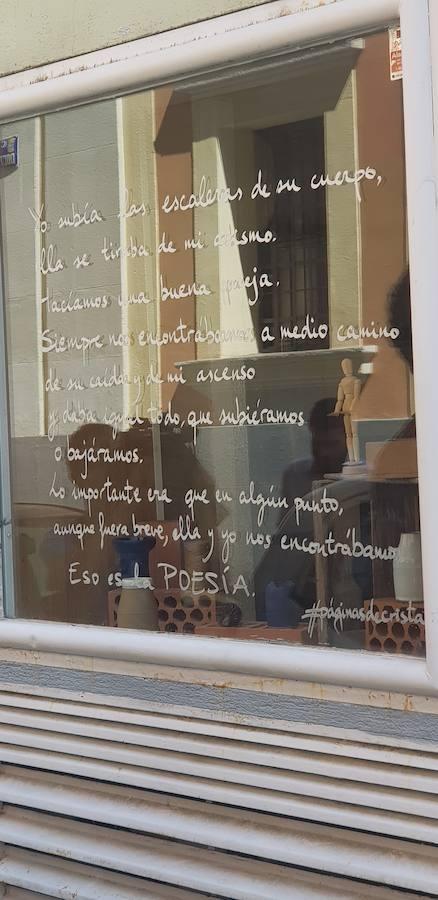 Yo subía las escaleras de su cuerpo,
ella se tiraba de mi abismo.
Hacíamos una buena pareja.
Siempre nos encontrábamos a medio camino
de su caída y de mi ascenso
y daba igual todo, que subiéramos
o bajáramos.
Lo importante era que en algún punto,
aunque fuera breve, ella y yo nos encontrábamos.
Eso es la POESÍA.
#páginasdecristal